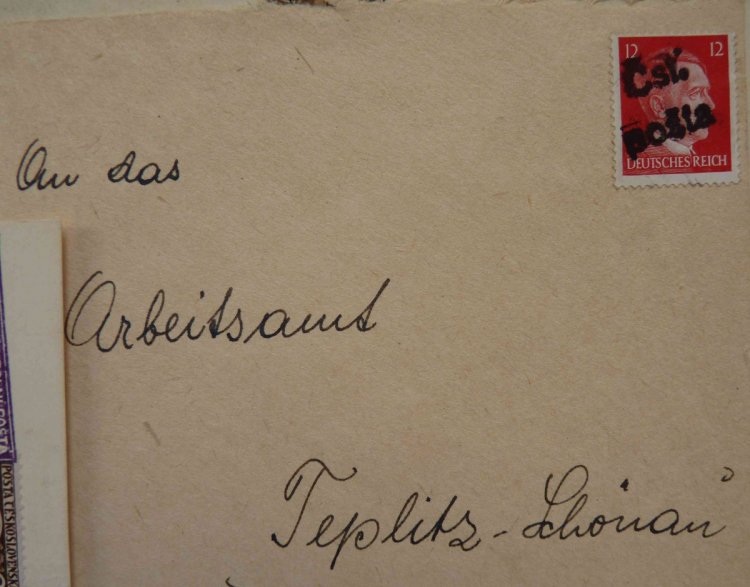 12 12
Čsl.
pošta
DEUTSCHES REICH
An das
Arbeitsamt
Teplitz-Schönau
POŠTA ČESKOSLOVENSK